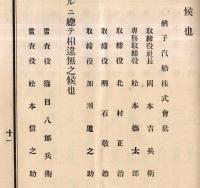 候也
銚子汽船株式會社
取締役社長 岡本吉兵衞
專務取締役 松本德太郎
取締役 北村正治
取締役 明石敬治
取締役 加瀨道之助
ルニ總テ相違無之候也
監査役 篠目八郎兵衞
監査役 松本信之助
十一